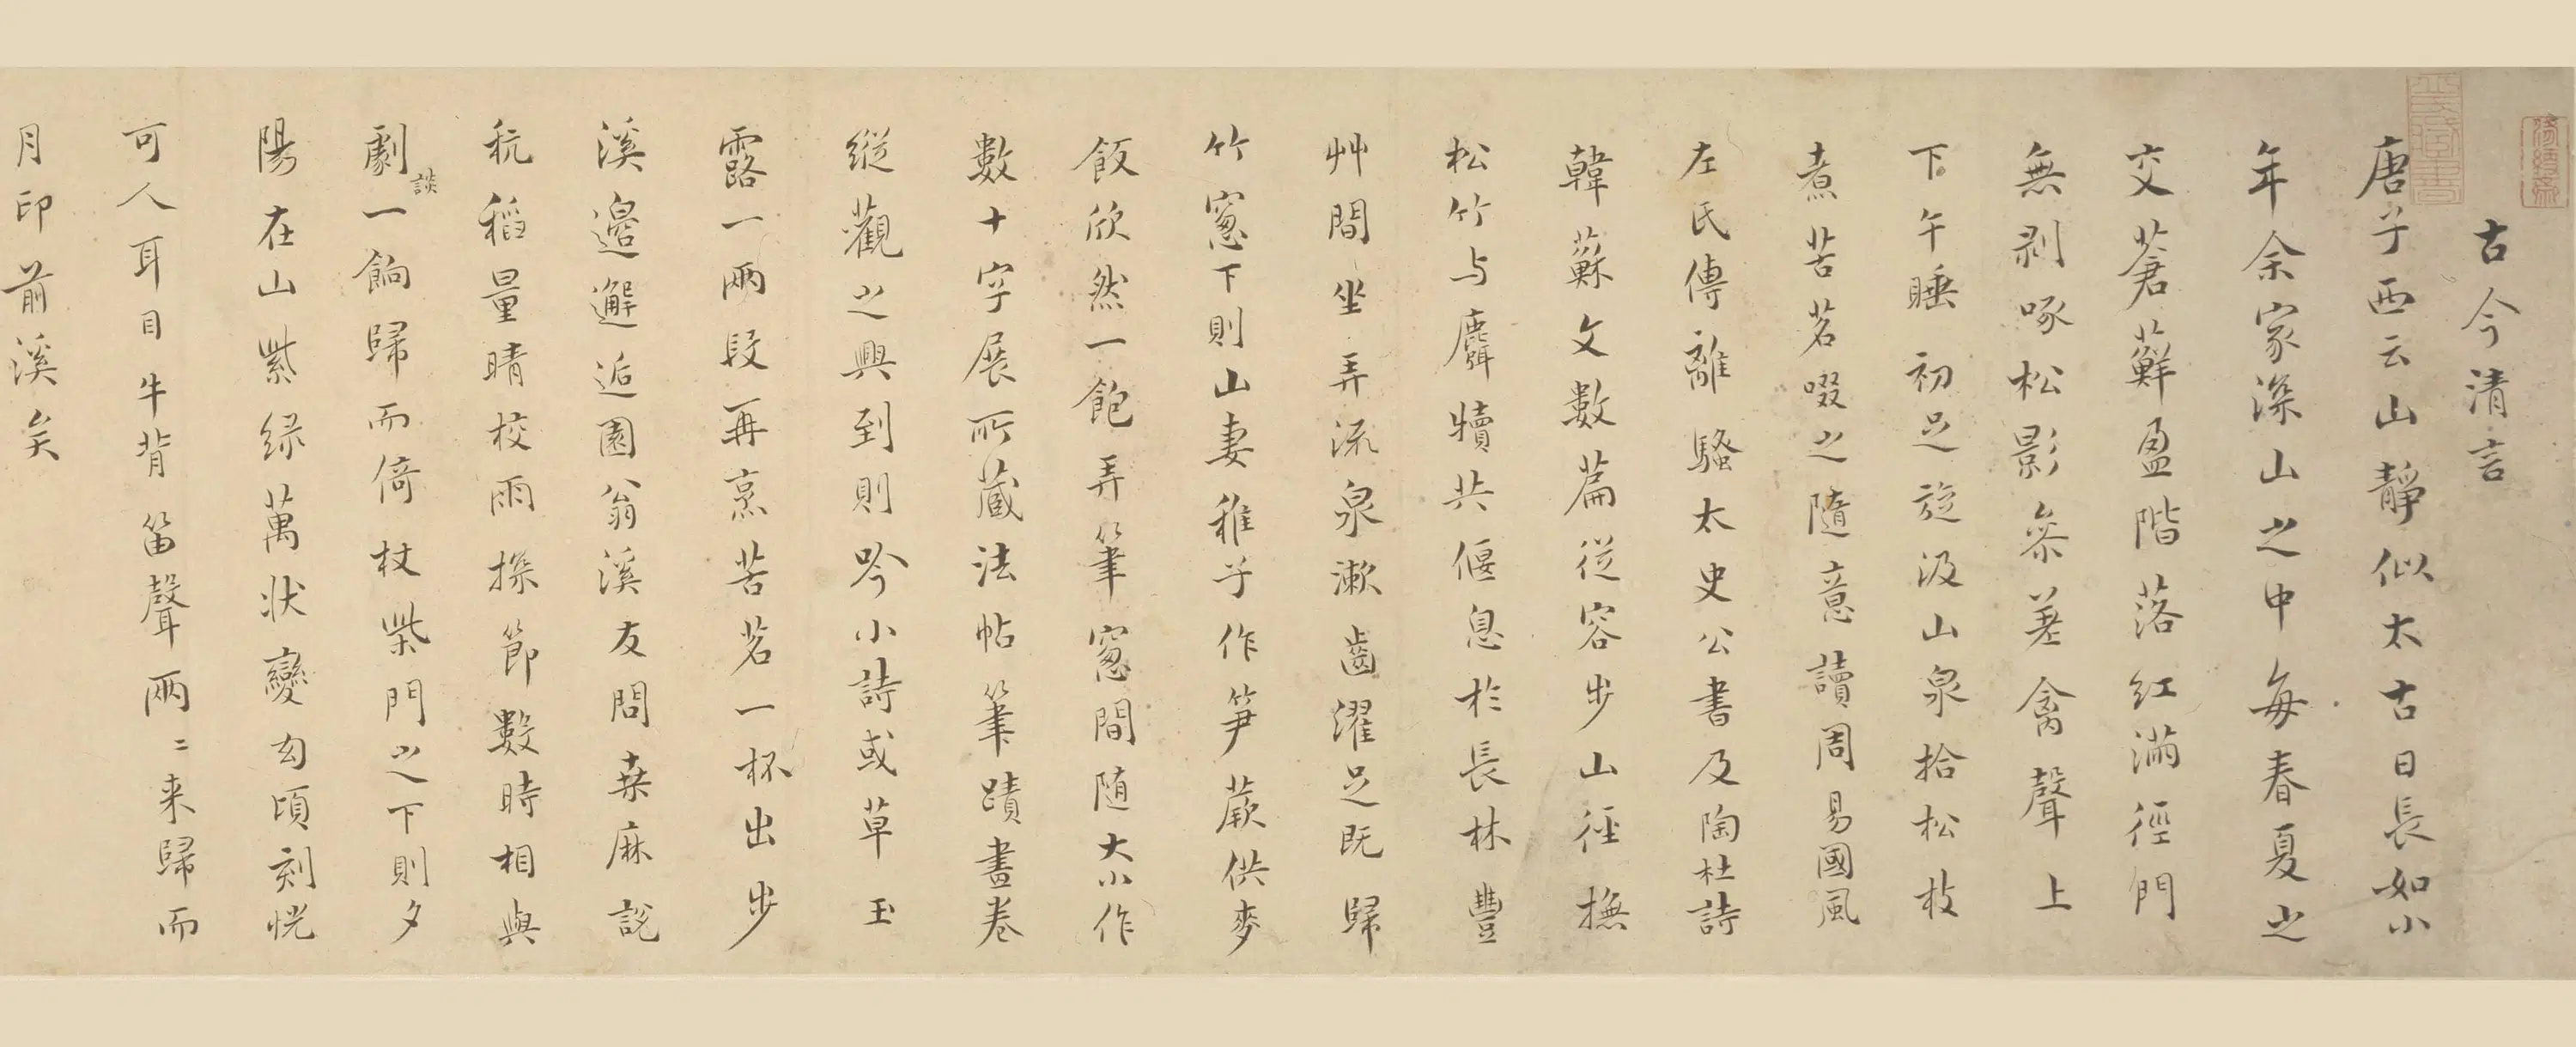 古今清言
唐子西云山靜似太古日長如小
年余家深山之中每春夏之
交蒼蘚盈階落紅滿徑門
無剥啄松影參差禽聲上
下午睡初足旋汲山泉拾松枝
煮苦茗啜之隨意讀周易國風
左氏傳離騷太史公書及陶杜詩
韓蘇文數篇從容步山徑撫
松竹与麛犢共偃息於長林豐
艸間坐弄流泉漱齒濯足既歸
竹窻下則山妻稚子作笋蕨供麥
飯欣然一飽弄筆窻間随大小作
數十字展所藏法帖筆蹟畫卷
縱觀之興到則吟小詩或草玉
露一兩段再烹苦茗一杯出步
溪邊邂逅園翁溪友問桒麻說
秔稻量晴校雨探節數時相與
劇談一餉歸而倚杖柴門之下則夕
陽在山紫绿萬狀變幻頃刻恍
可人耳目牛背笛聲兩〻来歸而
月印前溪矣